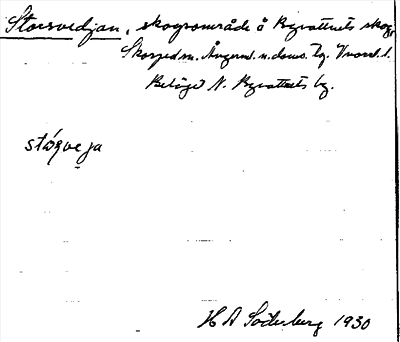 Storsvedjan, skogsområde å Byvattnets skog,
Skorped sn. Ångerml. n. doms. tg. Västl. l.
Beläget N. Byvattnets by.
stórsveja
H A Söderberg 1930